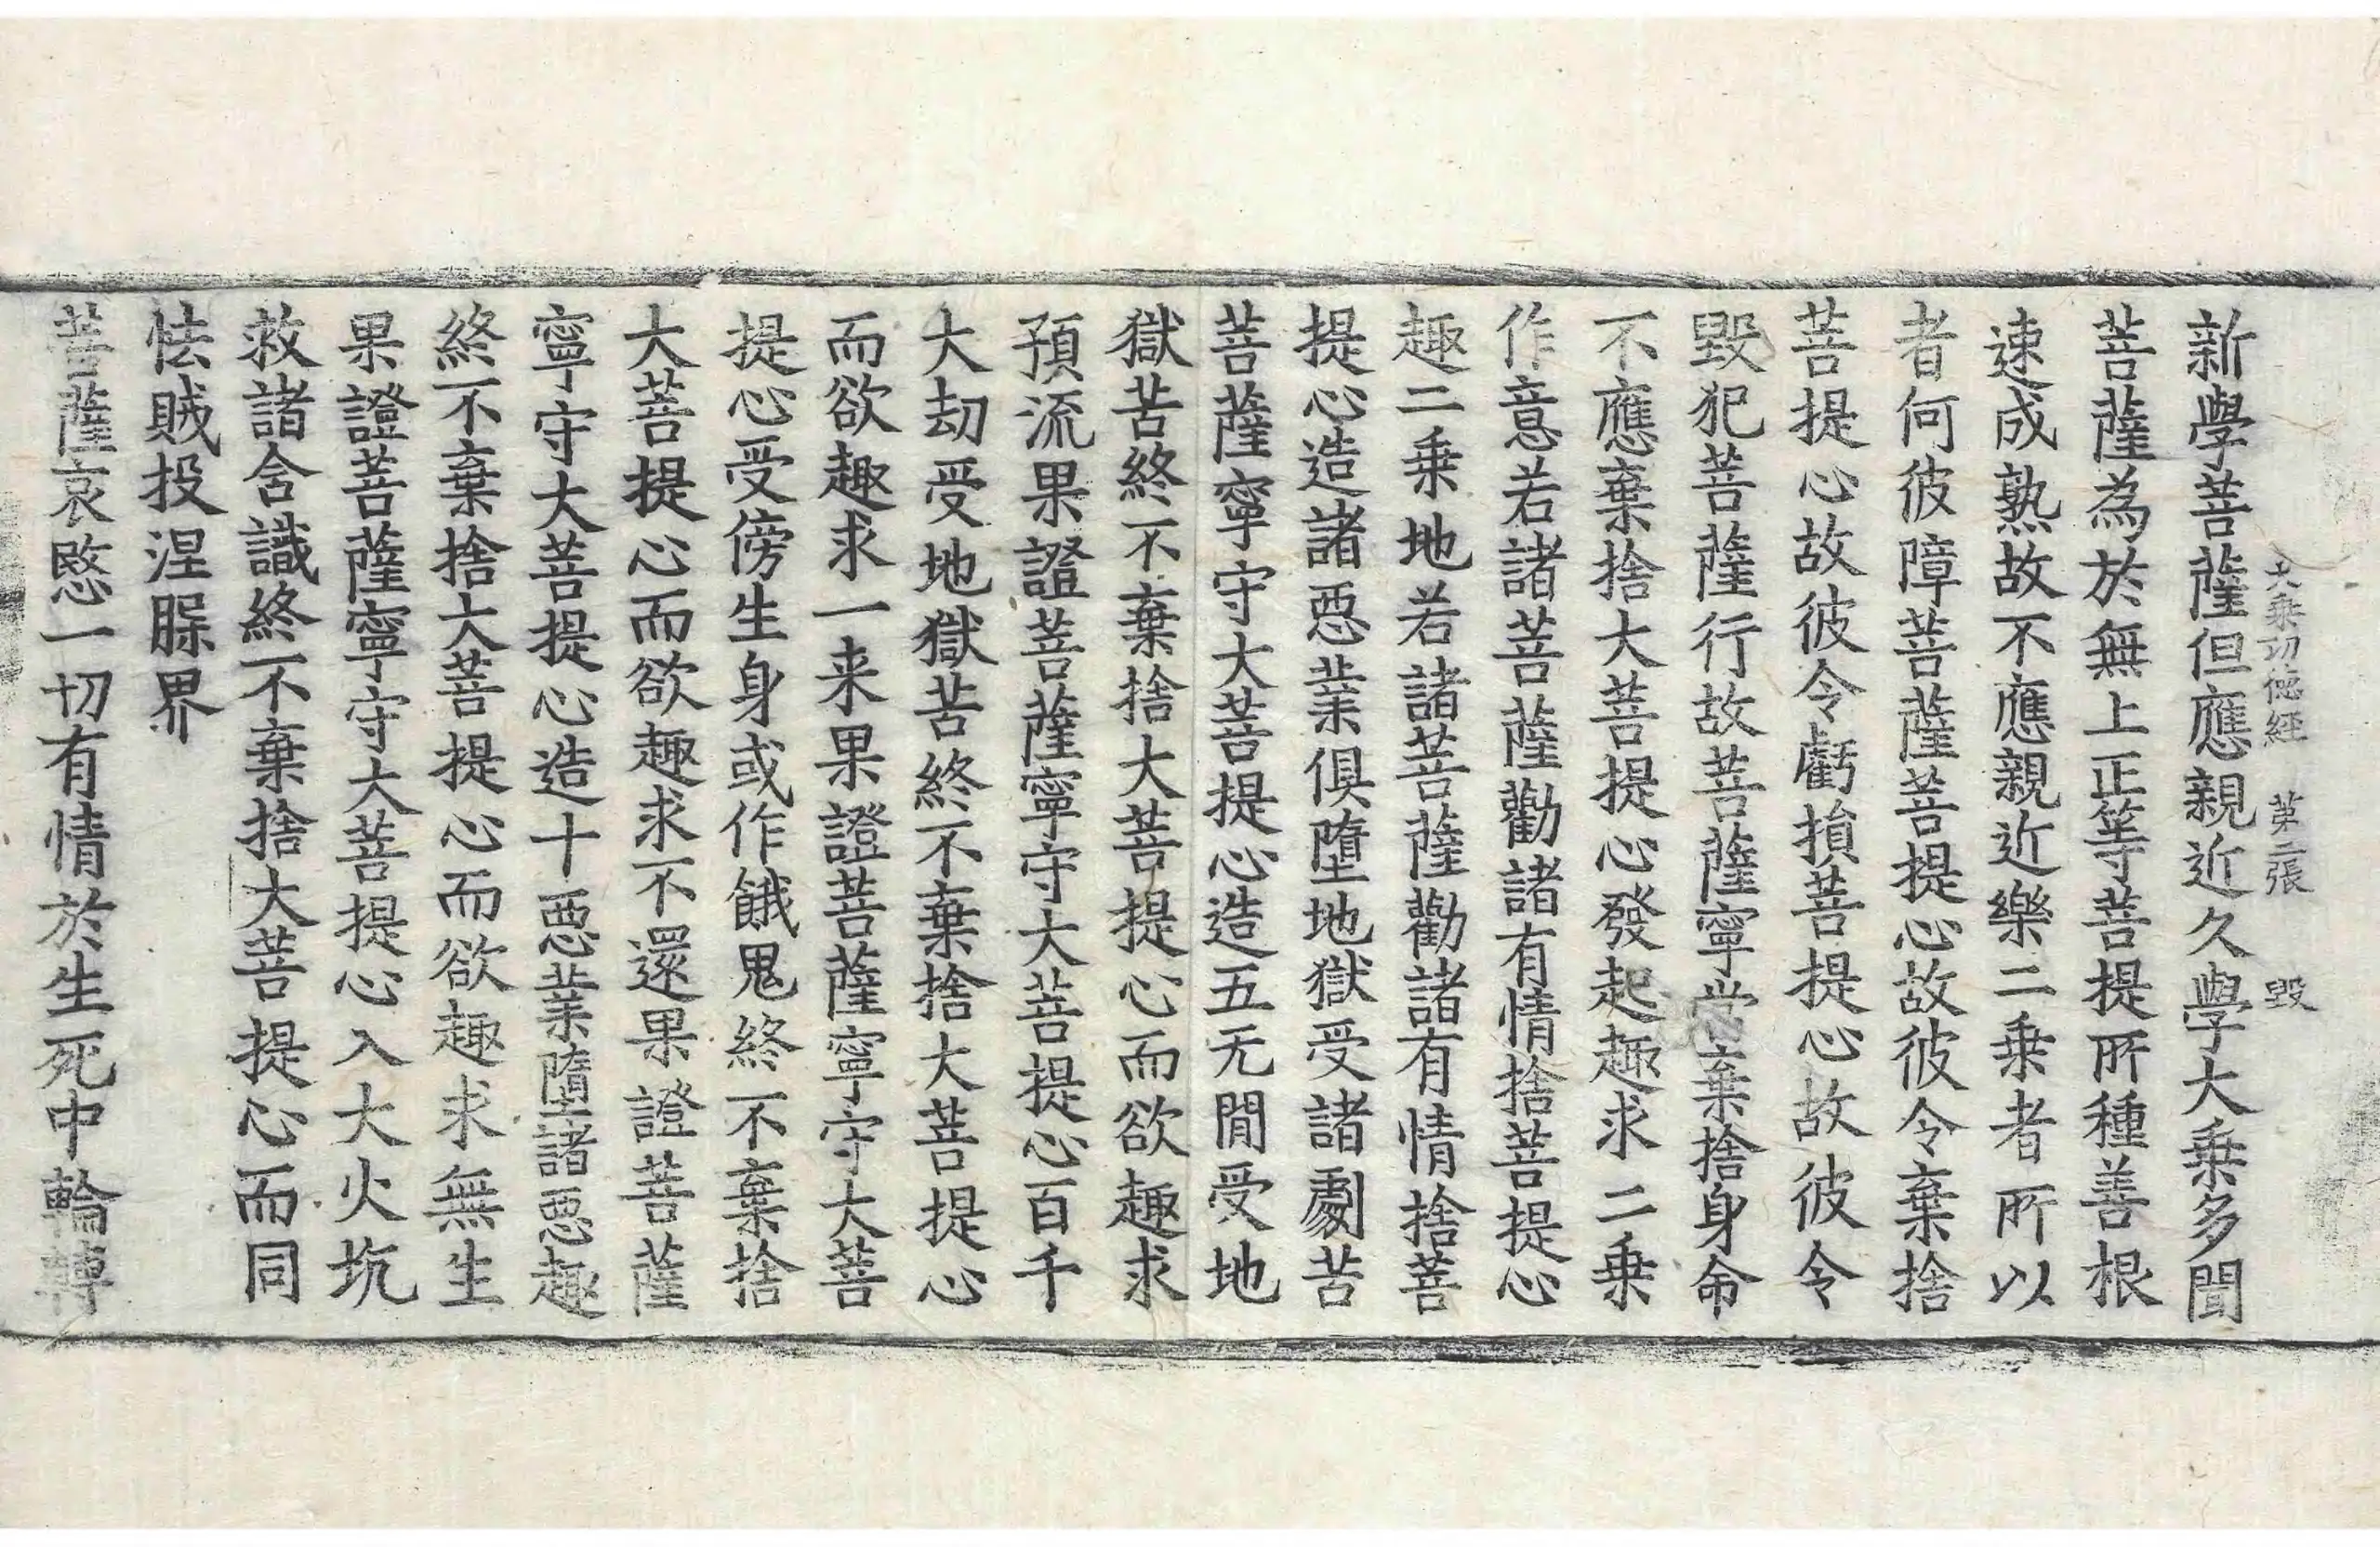 大乘功德經　第二張　毀
新學菩薩但應親近久學大乗多聞
菩薩為於無上正等菩提所種善根
速成熟故不應親近樂二乗者所以
者何彼障菩薩菩提心故彼令棄捨
菩提心故彼令虧損菩提心故彼令
毀犯菩薩行故菩薩寧當棄捨身命
不應棄捨大菩提心發起趣求二乗
作意若諸菩薩勸諸有情捨菩提心
趣二乗地若諸菩薩勸諸有情捨菩
提心造諸惡業俱墮地獄受諸劇苦
菩薩寧守大菩提心造五无間受地
獄苦終不棄捨大菩提心而欲趣求
預流果證菩薩寧守大菩提心百千
大劫受地獄苦終不棄捨大菩提心
而欲趣求一来果證菩薩寧守大菩
提心受傍生身或作餓鬼終不棄捨
大菩提心而欲趣求不還果證菩薩
寧守大菩提心造十惡業墮諸惡趣
終不棄捨大菩提心而欲趣求無生
果證菩薩寧守大菩提心入大火坑
救諸含識終不棄捨大菩提心而同
怯賊投涅槃界
菩薩哀愍一切有情於生死中輪轉